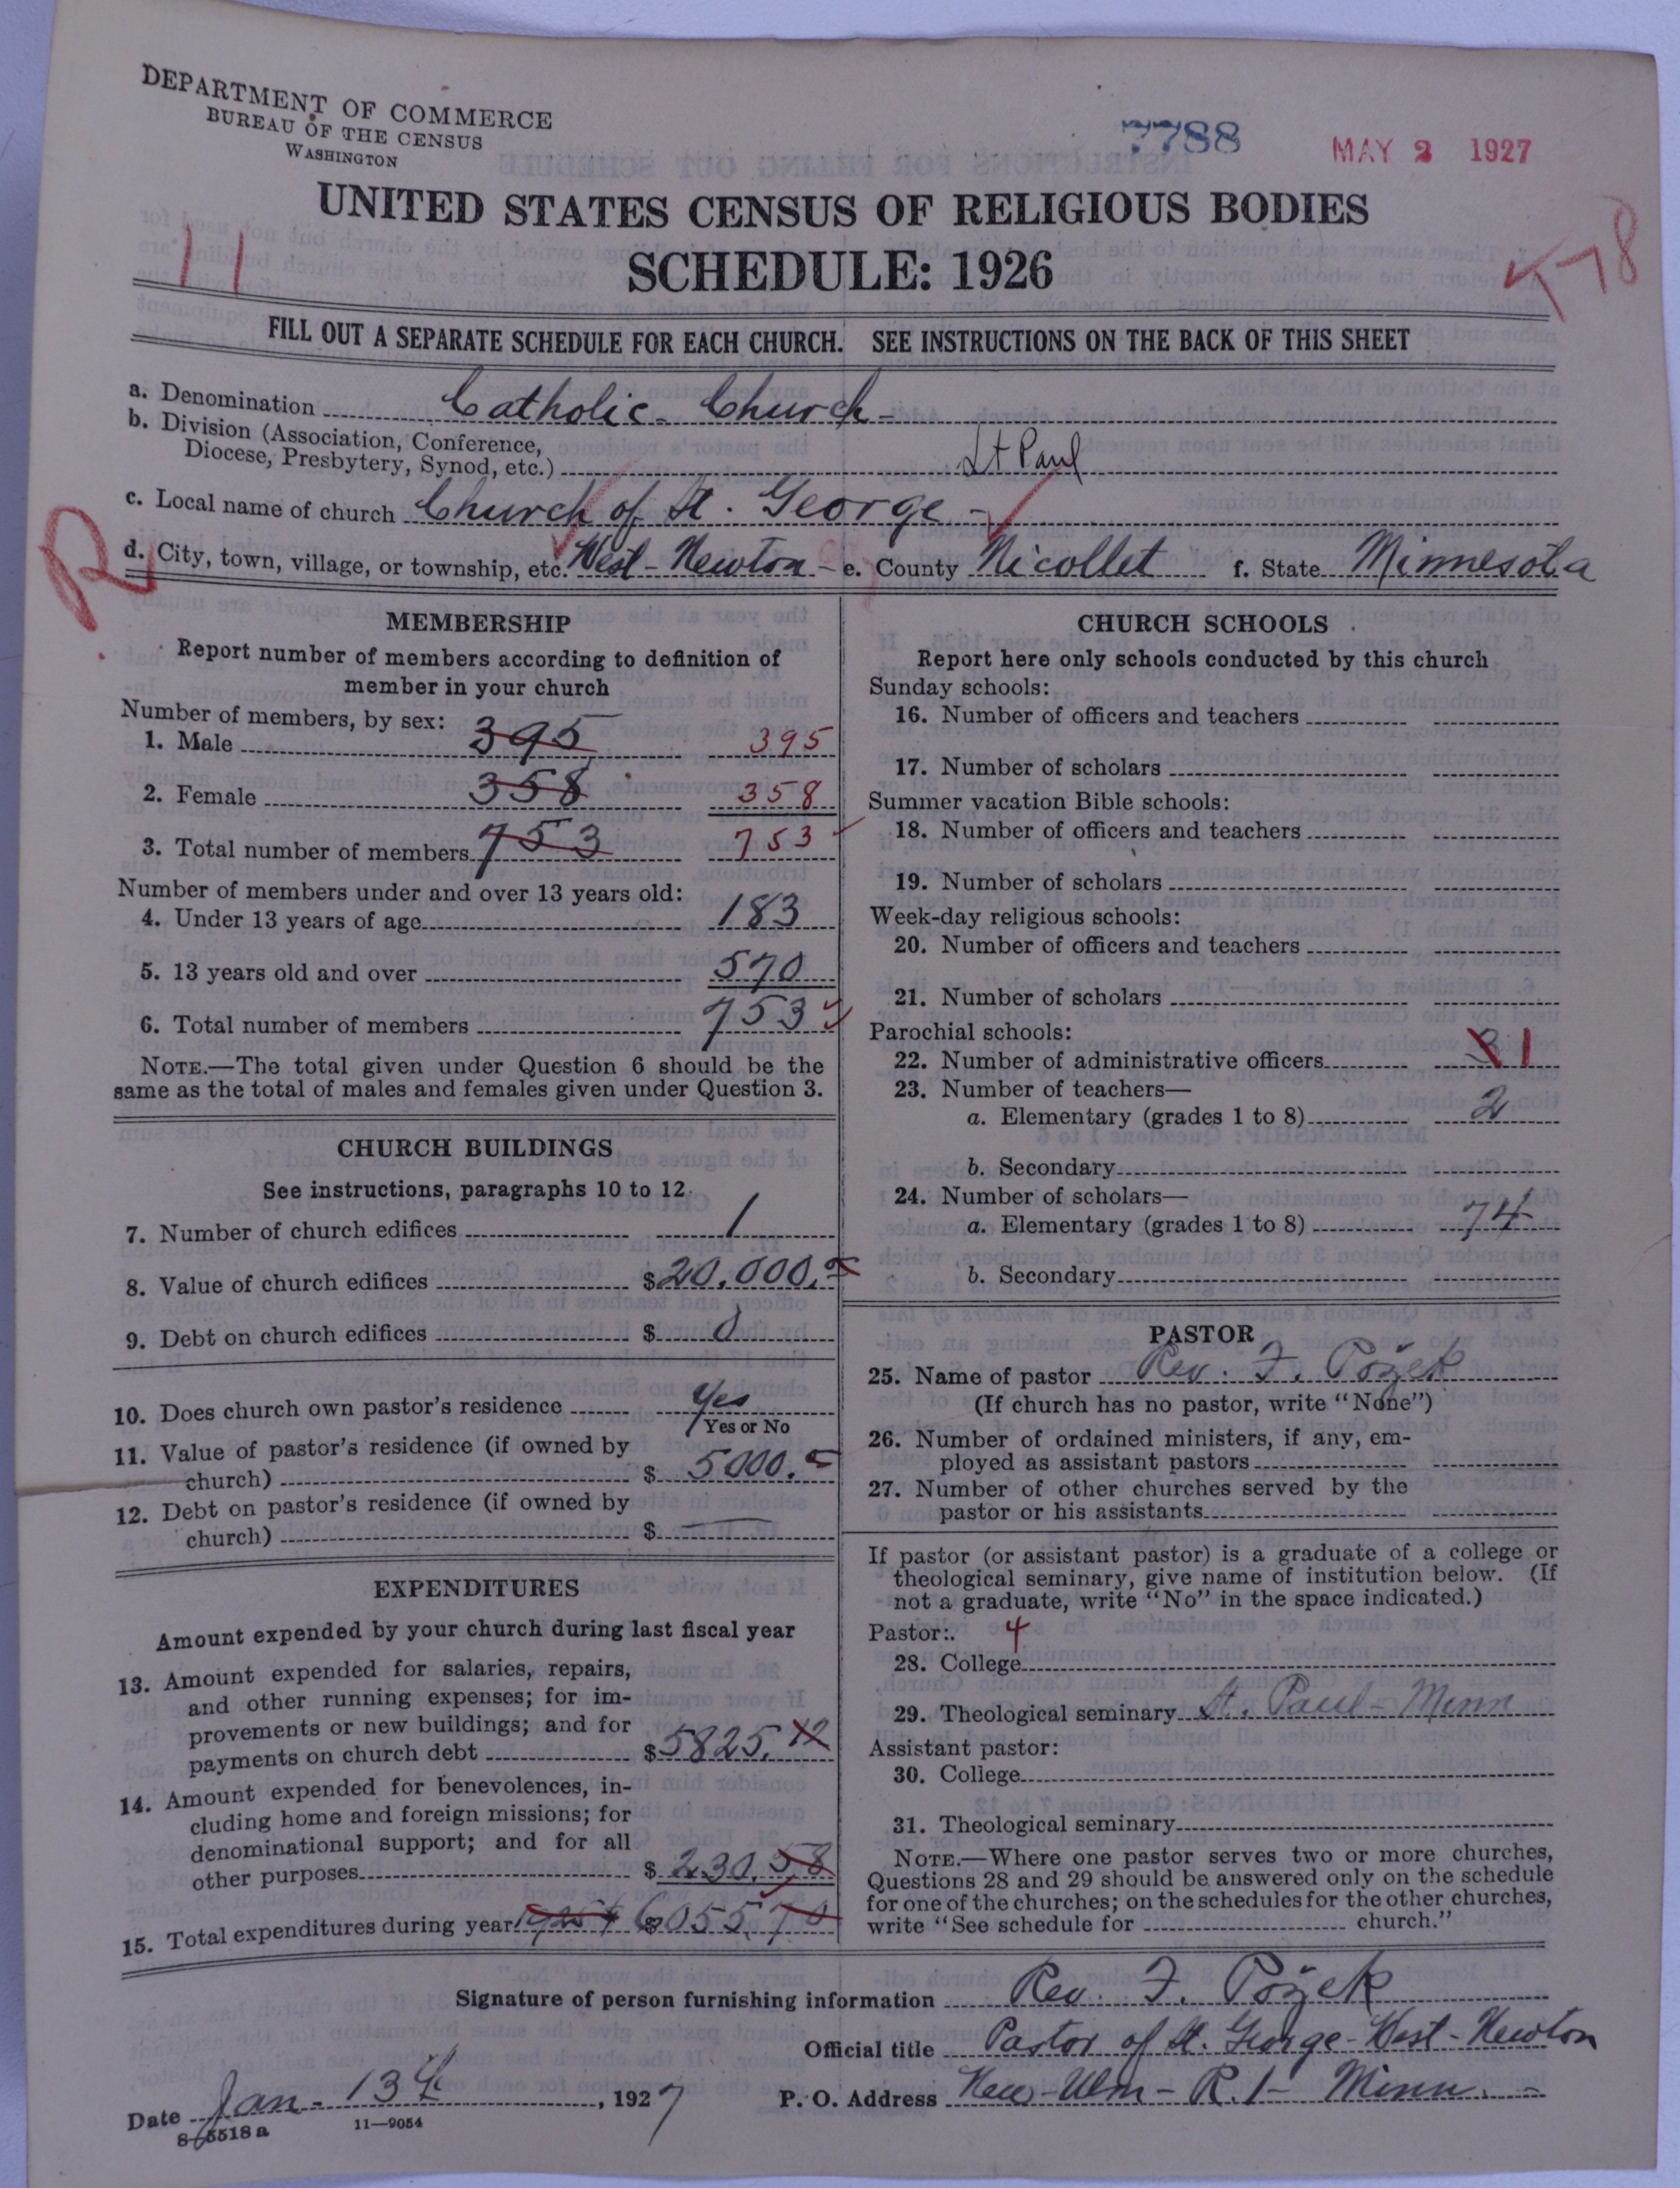 DEPARTMENT OF COMMERCE
BUREAU OF THE CENSUS
WASHINGTON
7788
MAY 2 1927
UNITED STATES CENSUS OF RELIGIOUS BODIES
SCHEDULE: 1926
11
478
FILL OUT A SEPARATE SCHEDULE FOR EACH CHURCH. SEE INSTRUCTIONS ON THE BACK OF THIS SHEET
a. Denomination Catholic - Church -
b. Division (Association, Conference,
Diocese, Presbytery, Synod, etc.) St Paul
c. Local name of church Church of St. George -
R
d. City, town, village, or township, etc. West - Newton - e. County Nicollet f. State Minnesota
MEMBERSHIP
Report number of members according to definition of
member in your church
Number of members, by sex:
1. Male 395 395
2. Female 358 358
3. Total number of members 753 753
Number of members under and over 13 years old:
4. Under 13 years of age 183
5. 13 years old and over 570
6. Total number of members 753
NOTE.—The total given under Question 6 should be the
same as the total of males and females given under Question 3.
CHURCH BUILDINGS
See instructions, paragraphs 10 to 12.
7. Number of church edifices 1
8. Value of church edifices $20.000.
9. Debt on church edifices $ 0
10. Does church own pastor's residence Yes
Yes or No
11. Value of pastor's residence (if owned by
church) $ 5000.
12. Debt on pastor's residence (if owned by
church) $ —
EXPENDITURES
Amount expended by your church during last fiscal year
13. Amount expended for salaries, repairs,
and other running expenses; for im-
provements or new buildings; and for
payments on church debt $5825.12
14. Amount expended for benevolences, in-
cluding home and foreign missions; for
denominational support; and for all
other purposes $ 230.58
15. Total expenditures during year $6055.70
CHURCH SCHOOLS
Report here only schools conducted by this church
Sunday schools:
16. Number of officers and teachers
17. Number of scholars
Summer vacation Bible schools:
18. Number of officers and teachers
19. Number of scholars
Week-day religious schools:
20. Number of officers and teachers
21. Number of scholars
Parochial schools:
22. Number of administrative officers 1
23. Number of teachers—
a. Elementary (grades 1 to 8) 2
b. Secondary
24. Number of scholars—
a. Elementary (grades 1 to 8) 74
b. Secondary
PASTOR
25. Name of pastor Rev. F. Požek
(If church has no pastor, write "None")
26. Number of ordained ministers, if any, em-
ployed as assistant pastors
27. Number of other churches served by the
pastor or his assistants
If pastor (or assistant pastor) is a graduate of a college or
theological seminary, give name of institution below. (If
not a graduate, write "No" in the space indicated.)
Pastor: 4
28. College
29. Theological seminary St. Paul - Minn
Assistant pastor:
30. College
31. Theological seminary
NOTE.—Where one pastor serves two or more churches,
Questions 28 and 29 should be answered only on the schedule
for one of the churches; on the schedules for the other churches,
write "See schedule for church."
Signature of person furnishing information Rev. F. Požek
Official title Pastor of St. George - West - Newton
Date Jan. 13th, 1927 P. O. Address New - Ulm - R. 1 - Minn. -
8—5518a 11—9054